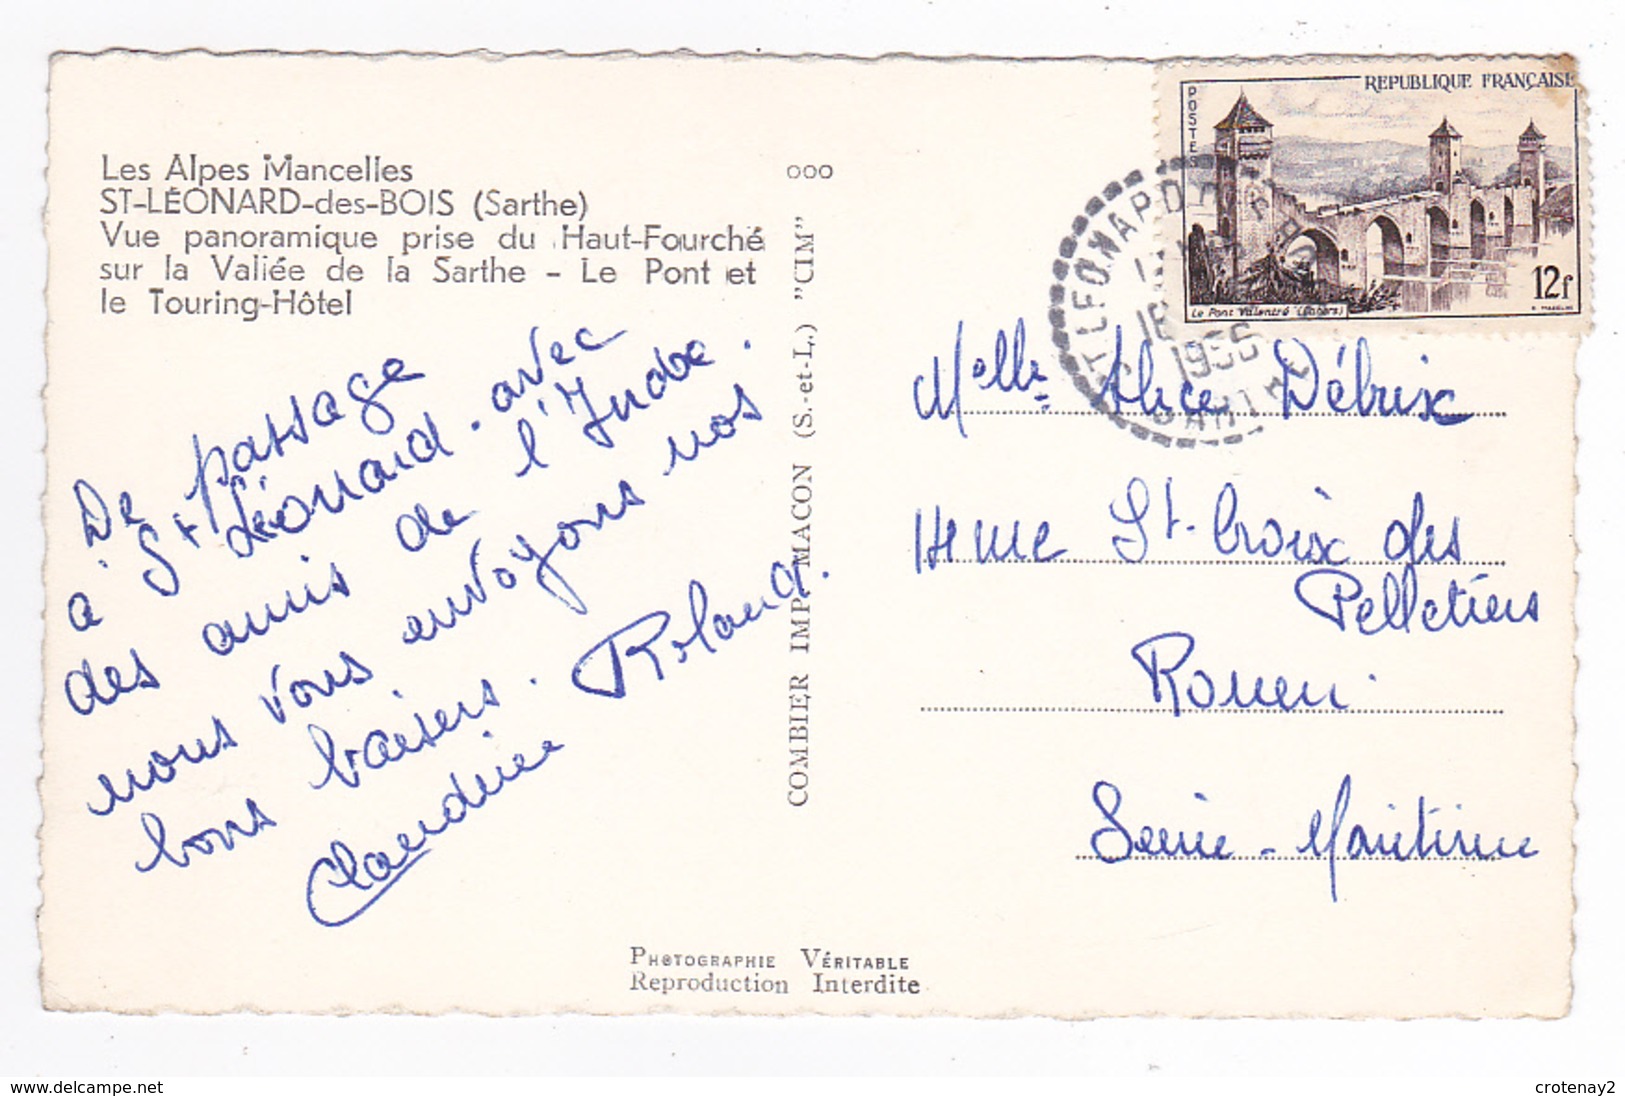 Les Alpes Mancelles
ST-LÉONARD-des-BOIS (Sarthe)
Vue panoramique prise du Haut-Fourché
sur la Vallée de la Sarthe - Le Pont et
le Touring-Hôtel
De passage
à St Léonard. avec
des amis de l'Indre.
nous vous envoyons nos
bons baisers. Roland.
Claudine
ooo
COMBIER IMP. MACON (S.-et-L.) "CIM"
PHOTOGRAPHIE VÉRITABLE
Reproduction Interdite
REPUBLIQUE FRANÇAISE
POSTES
Le Pont Valentré (Cahors)
12f
ST LEONARD
18
SARTHE
Melle Alice Débrix
14 rue St-Croix des
Pelletiers
Rouen.
Seine-Maritime
www.delcampe.net
crotenay2